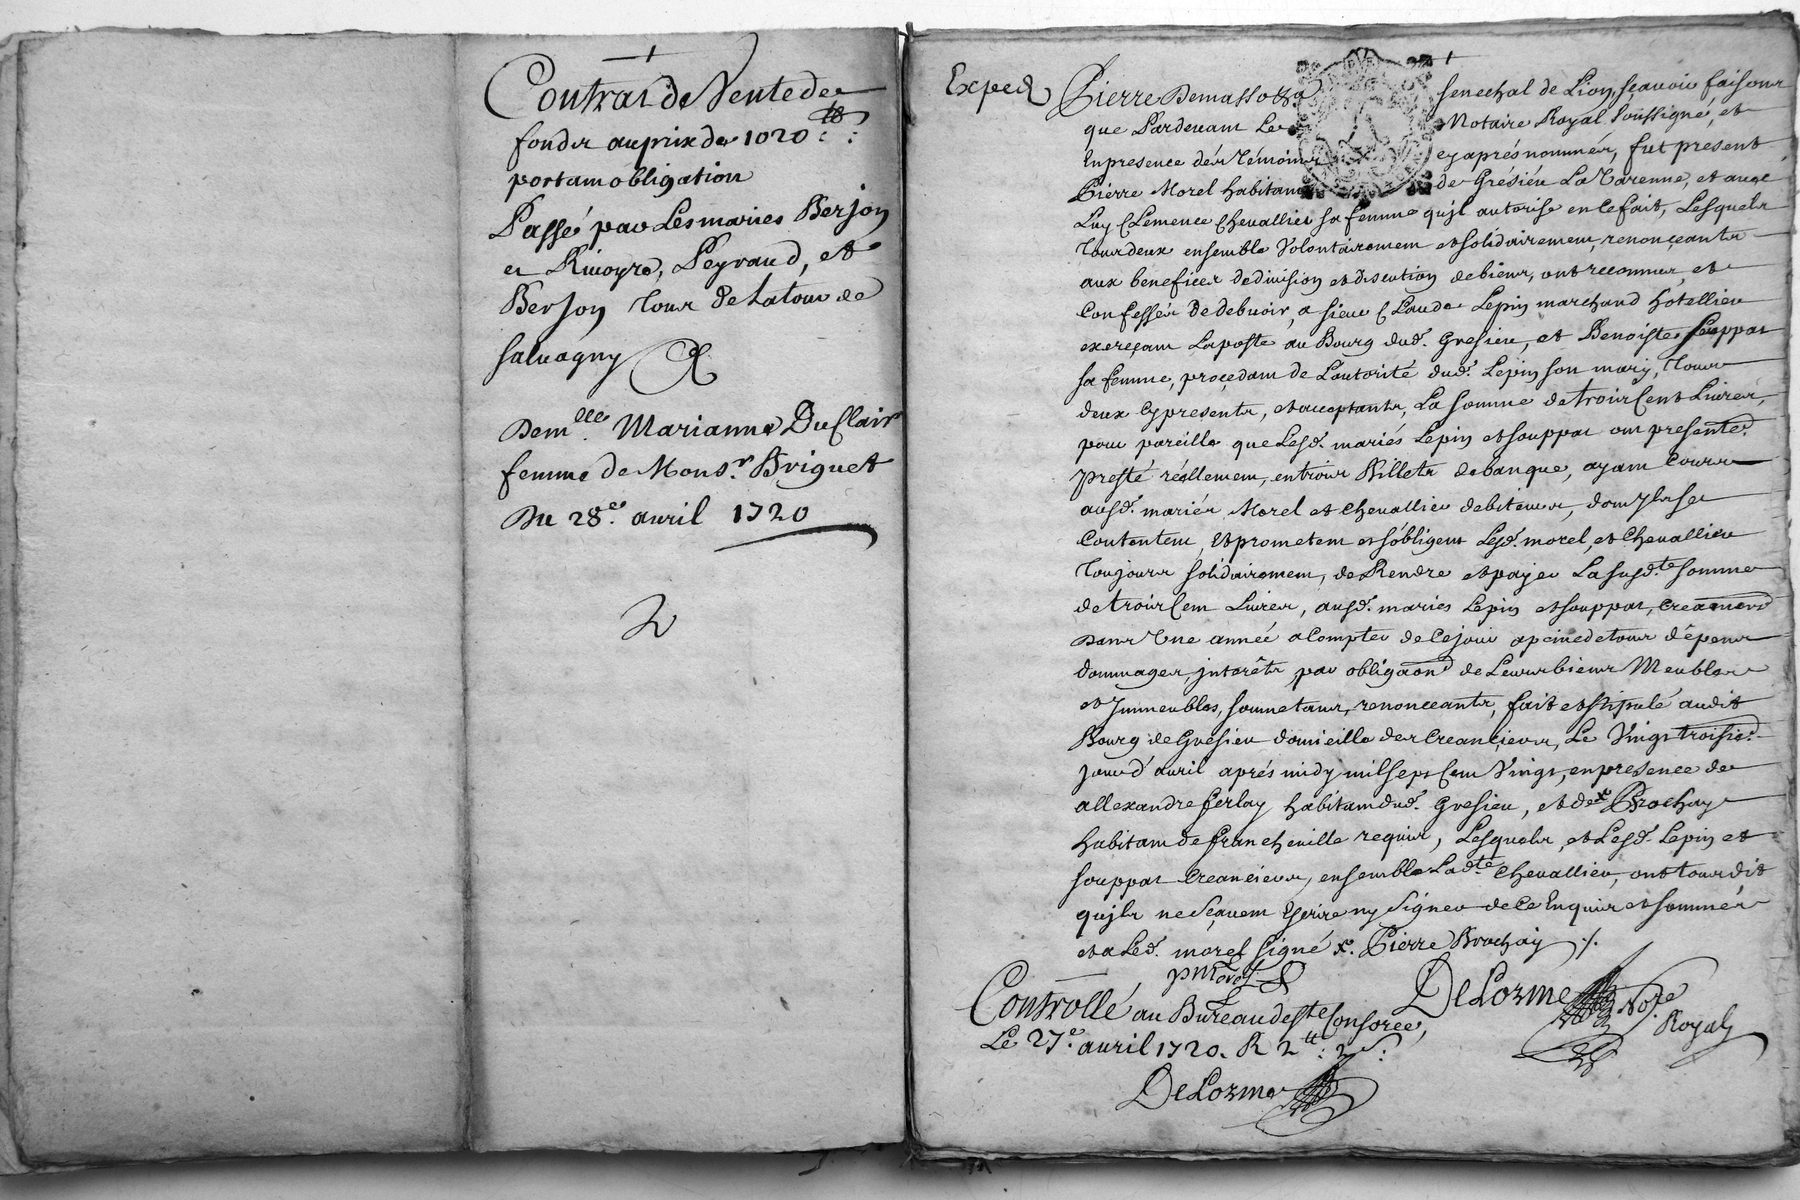 Contrat de Vente de
fonds au prix de 1020 ₶
portam obligation
Passé par Les maries Berjon
et Rivoyre, Peyraud, et
Berjon tour de Latour de
Salvagny
Dem.lle Marianne Duclair
femme de Mons.r Briguet
Du 28.e avril 1720
2
Exped
Pierre Demassoza senechal de Lion, sçavoir faisons
que Pardevant Le Notaire Royal soussigné, et
En presence des Témoins cy aprés nommés, fut present
Pierre Morel habitant de Grésieu La Varenne, et avec
Luy Clemence Chevallier sa femme qu'jl autorise en ce fait, Lesquels
tous deux ensemble Volontairement et solidairement, renonçants
aux benefices de division et discution de biens, ont reconnus et
Confessés de debvoir, a sieur Claude Lepin marchand hotellier
exerçam La poste au Bourg dud. Gresieu, et Benoiste souppat
sa femme, proçedam de L'autorité dud. Lepin son mary, tous
deux Cy presents, et acceptants, La somme de trois Cent Livres,
pour pareille que Lesd. mariés Lepin et souppat om presentem.
presté réellement, en trois Billets de banque, ayam Cours
ausd. mariés Morel et Chevallier debiteurs, dom jls se
Contentem, Et prometem et s'obligent Lesd. morel, et Chevallier
Toujours solidairement, de Rendre et payer La susd.te somme
de trois Cem Livres, ausd. mariés Lepin et souppat, Creanciers
Dans Une année a Compter de Ce jour a peine de tous dépens
dommages, jnterêts, par obligaon de Leurs biens Meubles
et Jmmeubles, soumetans, renonceants, fait et stipulé audit
Bourg de Gresieu domicille des Creanciers, Le Vingt troisie.
jour d'avril aprés midy mil sept Cem Vingt, en presence de
allexandre ferlay habitam dud. Gresieu, et de x Brochay
habitam de francheville requis, Lesquels, et Lesd. Lepin et
souppat Creanciers, ensemble Lad.te Chevallier, ont tous dit
qu'jls ne sçavem Escrire ny signer de ce Enquis et sommés
et a Led. morel signé x. Pierre Brochay ./.
pmorel
DeLorme Not.re
Royal
Controllé au Bureau de s.te Consorce,
Le 27.e avril 1720. R 2 ₶: 2 s:
DeLorme